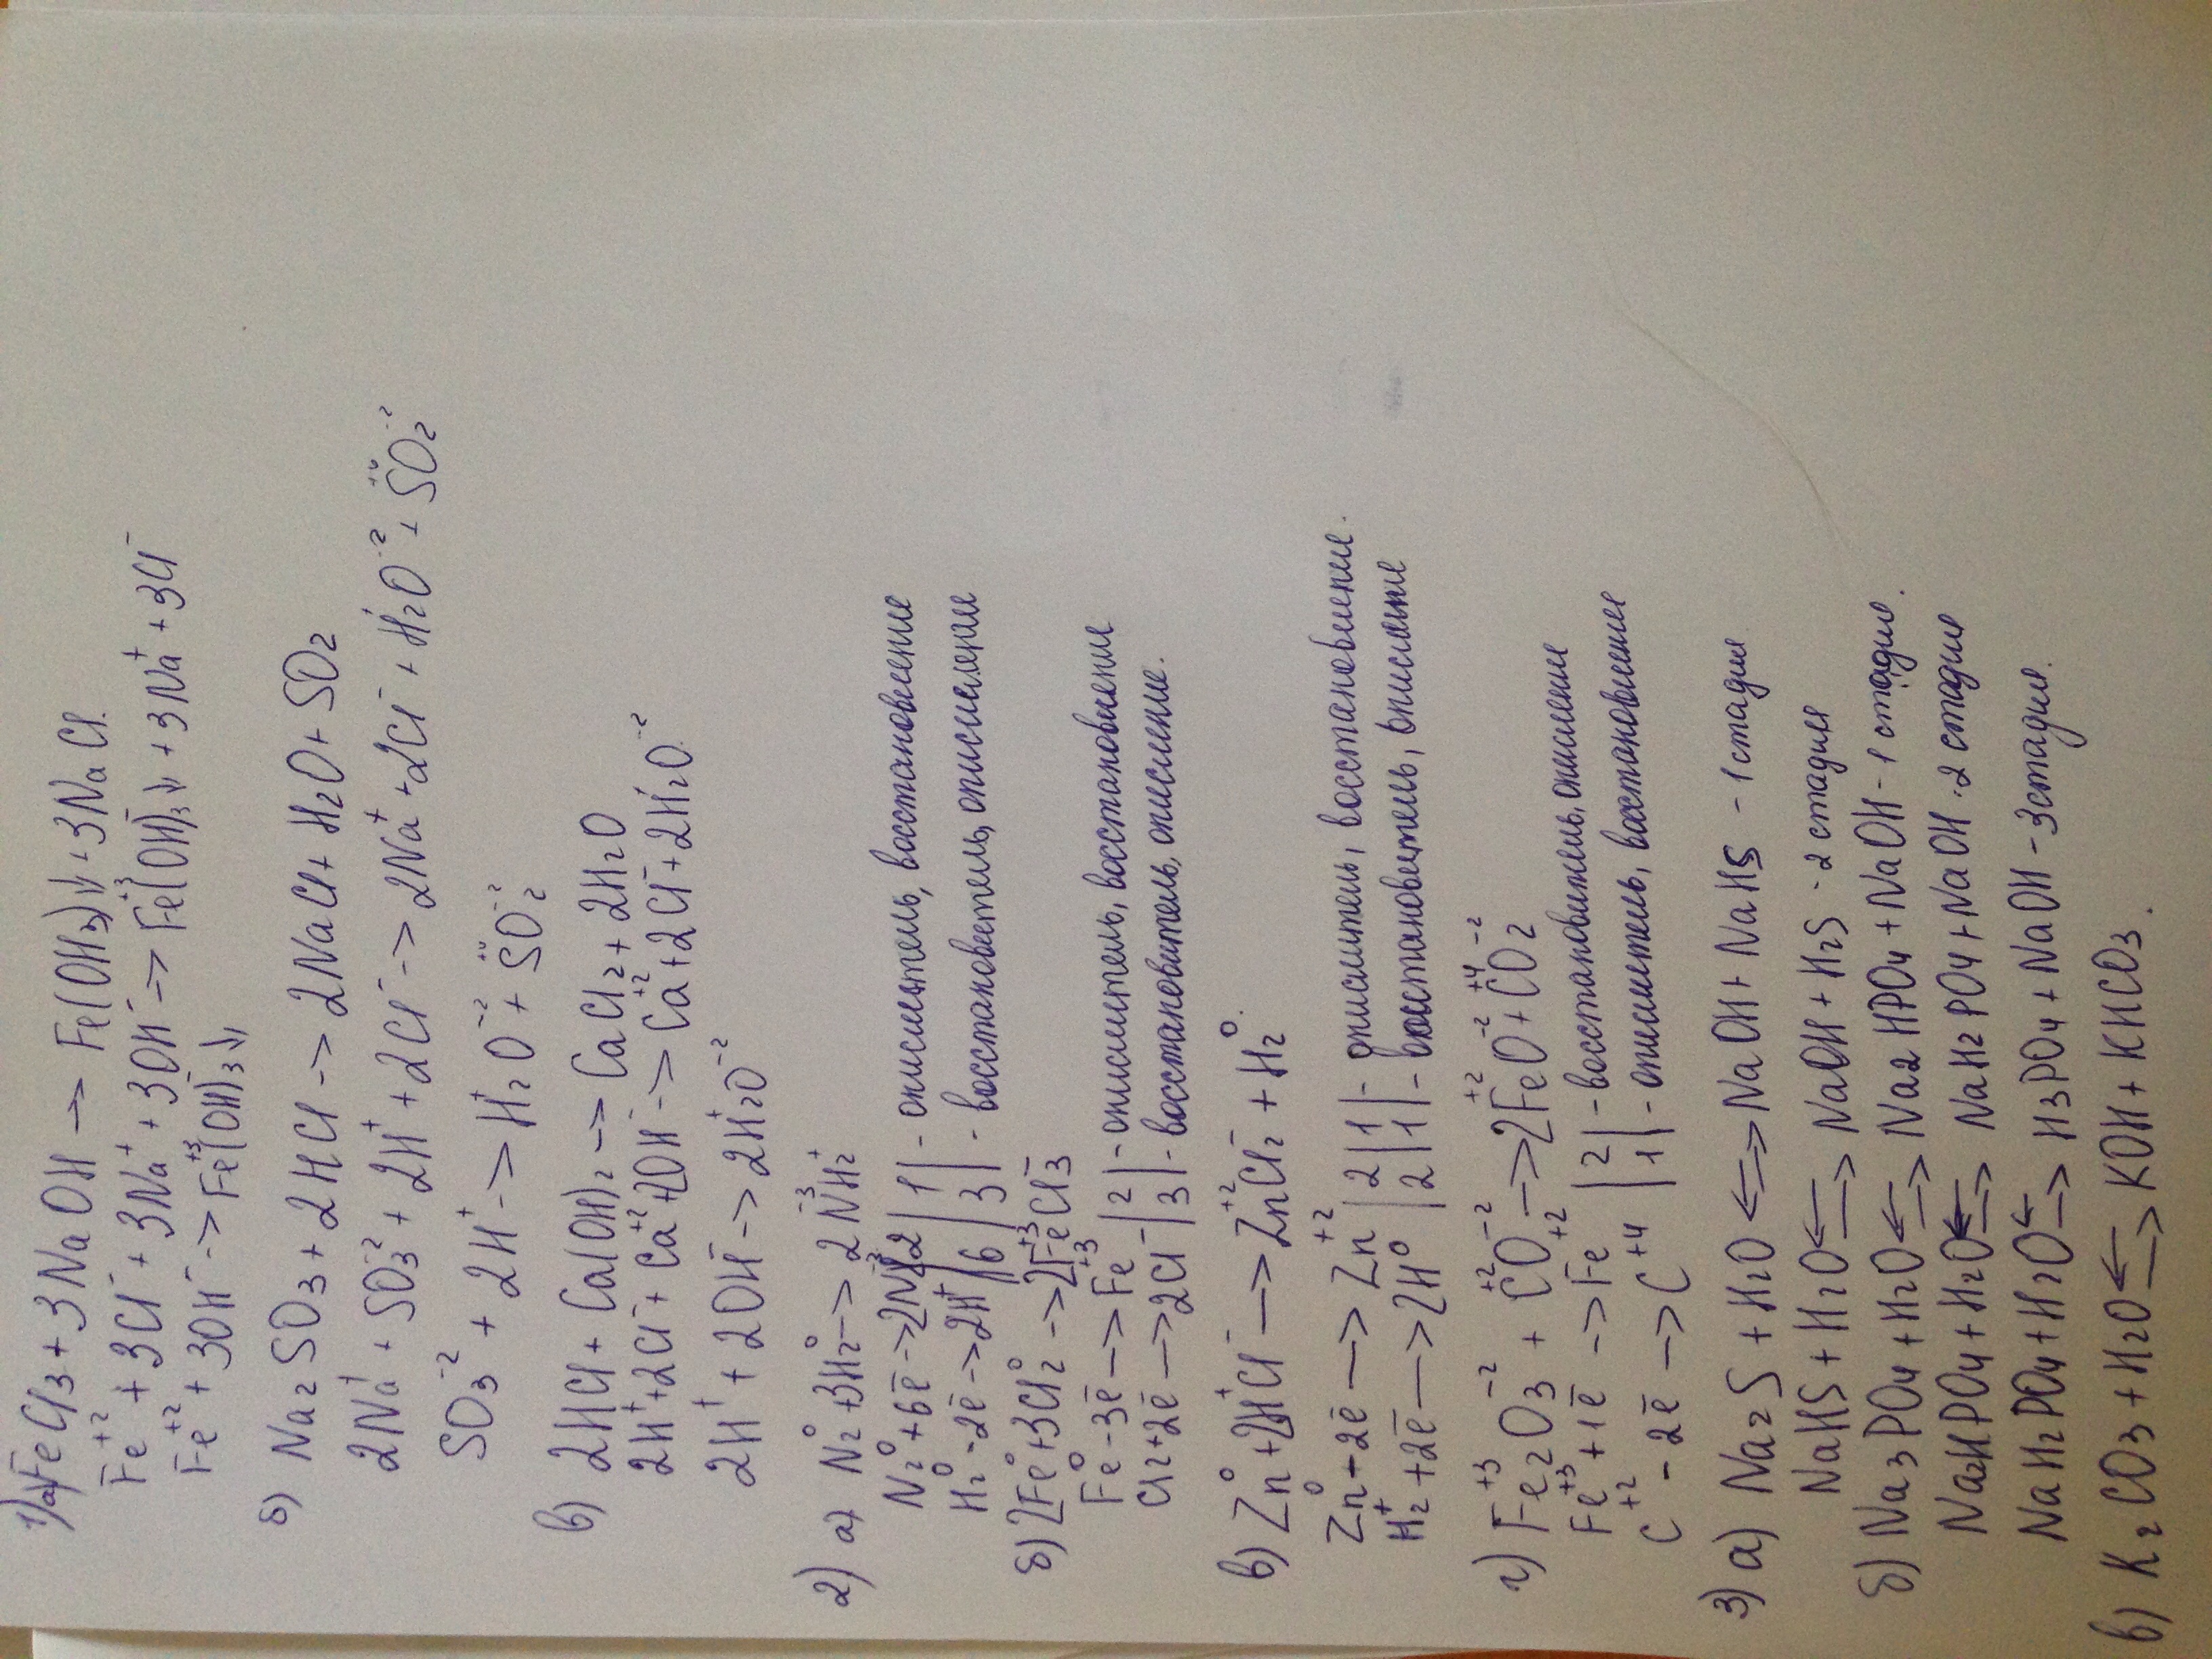 1) а) FeCl₃ + 3NaOH → Fe(OH₃)↓ + 3NaCl.
Fe⁺² + 3Cl⁻ + 3Na⁺ + 3OH⁻ → Fe⁺³(OH)⁻₃↓ + 3Na⁺ + 3Cl⁻
Fe⁺² + 3OH⁻ → Fe⁺³(OH)⁻₃↓
б) Na₂SO₃ + 2HCl → 2NaCl + H₂O + SO₂
2Na⁺ + SO₃⁻² + 2H⁺ + 2Cl⁻ → 2Na⁺ + 2Cl⁻ + H⁺₂O⁻² + S⁺⁴O₂⁻²
SO₃⁻² + 2H⁺ → H⁺₂O⁻² + S⁺⁴O₂⁻²
в) 2HCl + Ca(OH)₂ → CaCl₂ + 2H₂O
2H⁺ + 2Cl⁻ + Ca⁺² + 2OH⁻ → Ca⁺² + 2Cl⁻ + 2H⁺₂O⁻²
2H⁺ + 2OH⁻ → 2H⁺₂O⁻²
2) а) N₂⁰ + 3H₂⁰ → 2N⁻³H₂⁺
N₂⁰ + 6ē → 2N⁻³ |2| 1 | - окислитель, восстановление
H₂⁰ - 2ē → 2H⁺ |6| 3 | - восстановитель, окисление
б) 2Fe⁰ + 3Cl₂⁰ → 2Fe⁺³Cl₃⁻
Fe⁰ - 3ē → Fe⁺³ | 2 | - окислитель, восстановление
Cl₂ + 2ē → 2Cl⁻ | 3 | - восстановитель, окисление.
в) Zn⁰ + 2H⁺Cl⁻ → Zn⁺²Cl₂⁻ + H₂⁰.
Zn⁰ - 2ē → Zn⁺² | 2 | 1 | - окислитель, восстановление.
H₂⁺ + 2ē → 2H⁰ | 2 | 1 | - восстановитель, окисление
г) Fe₂⁺³O₃⁻² + C⁺²O⁻² → 2Fe⁺²O⁻² + C⁺⁴O₂⁻²
Fe⁺³ + 1ē → Fe⁺² | 2 | - восстановитель, окисление
C⁺² - 2ē → C⁺⁴ | 1 | - окислитель, восстановление
3) а) Na₂S + H₂O ⇄ NaOH + NaHS - 1 стадия
NaHS + H₂O ⇄ NaOH + H₂S - 2 стадия
б) Na₃PO₄ + H₂O ⇄ Na₂HPO₄ + NaOH - 1 стадия.
Na₂HPO₄ + H₂O ⇄ NaH₂PO₄ + NaOH - 2 стадия
NaH₂PO₄ + H₂O ⇄ H₃PO₄ + NaOH - 3 стадия.
в) K₂CO₃ + H₂O ⇄ KOH + KHCO₃.